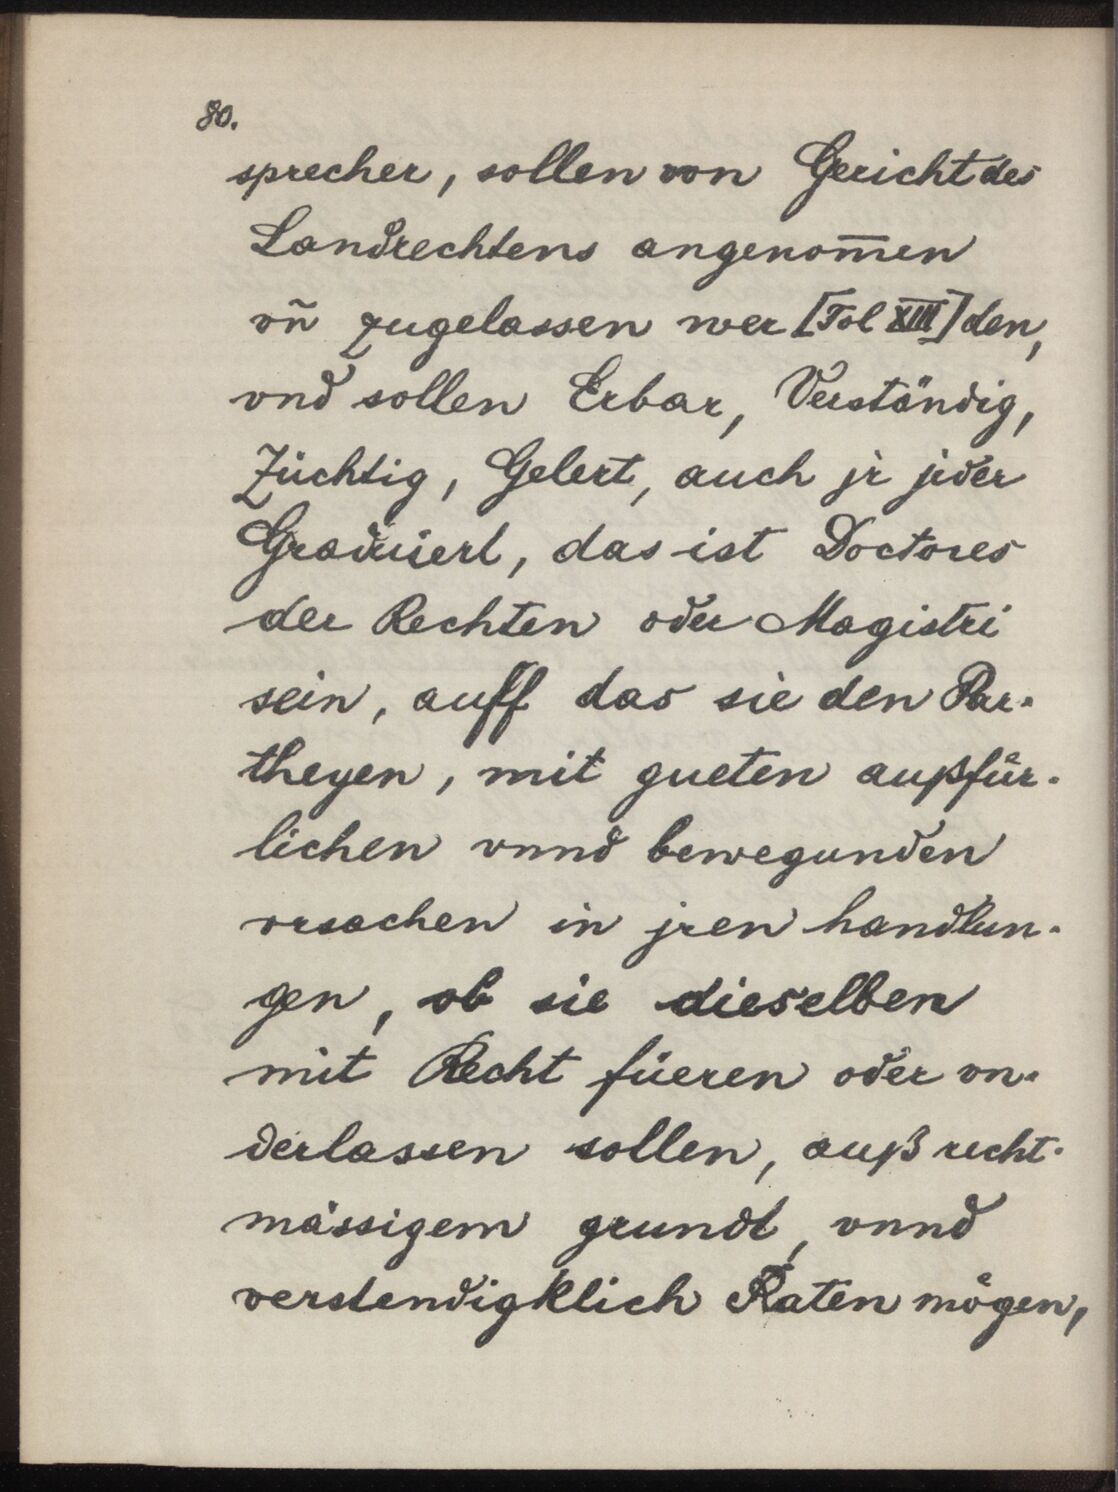 80.
sprecher, sollen von Gericht des
Landrechtens angenom̄en
vn̄ zugelassen wer [Fol XIII] den,
vnd sollen Erbar, Verständig,
Züchtig, Gelert, auch jr jeder
Graduiert, das ist Doctores
der Rechten oder Magistri
sein, auff das sie den Par-
theyen, mit gueten außfür-
lichen vnnd bewegunden
vrsachen in jren handlun-
gen, ob sie dieselben
mit Recht füeren oder vn-
derlassen sollen, auß recht-
mässigem grundt, vnnd
verstendigklich Raten mögen,